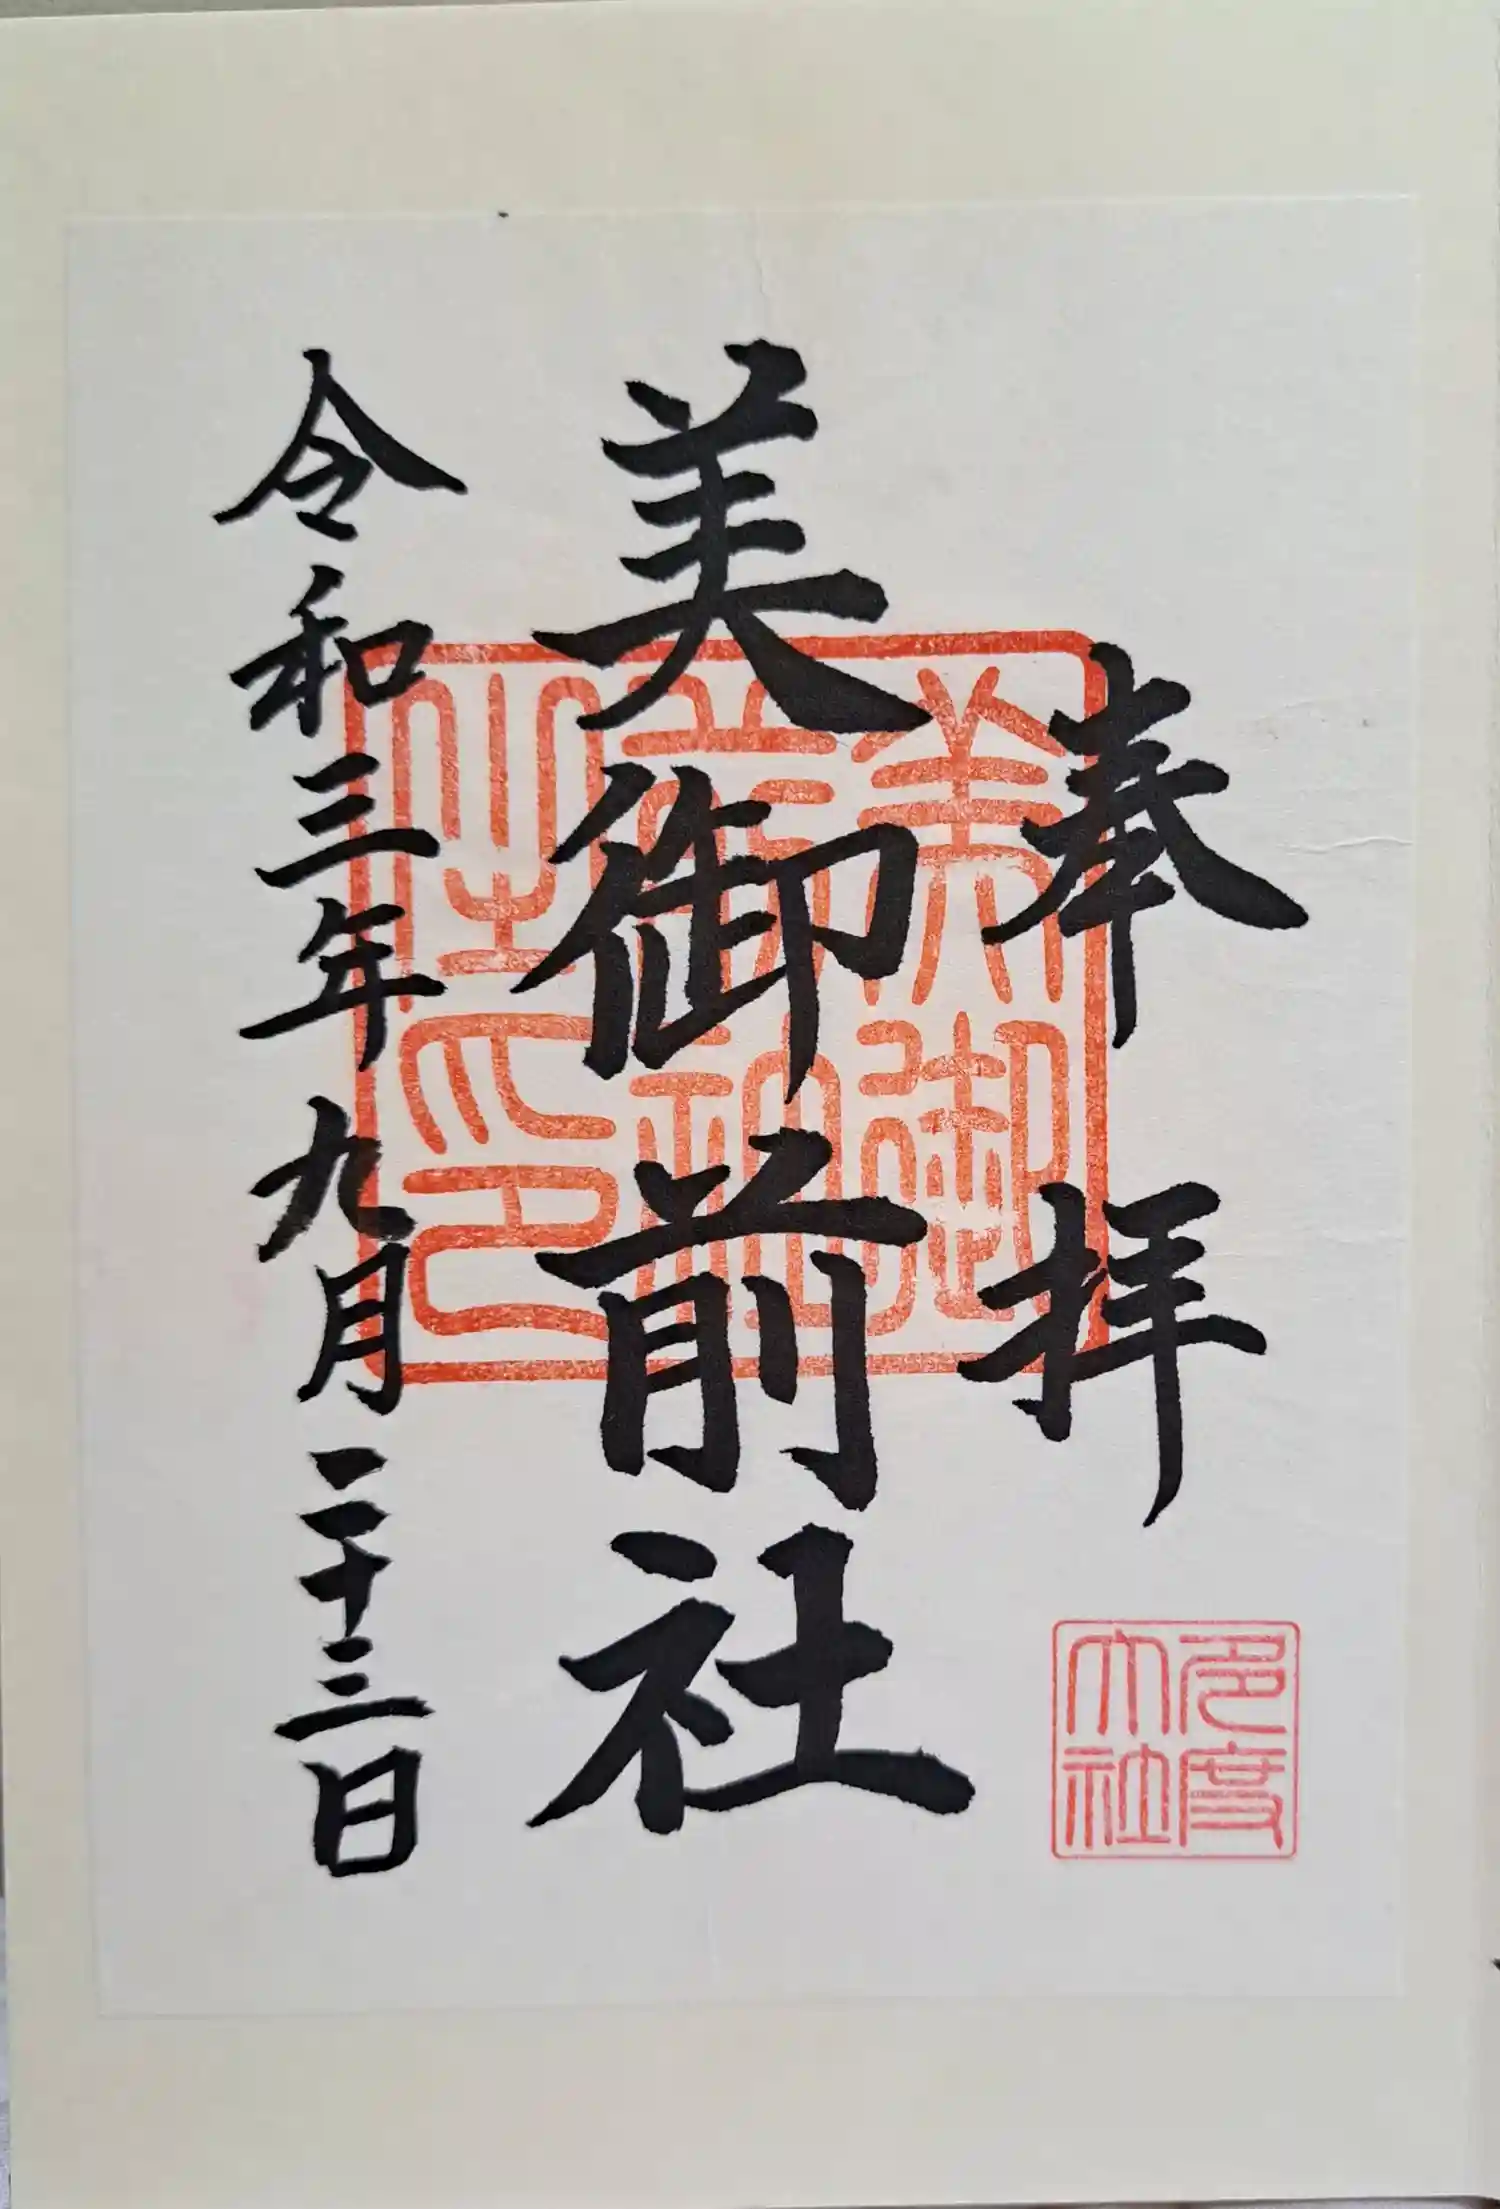 奉拝
多度
大社
美御前社
美御
前神
社印
令和三年九月二十三日